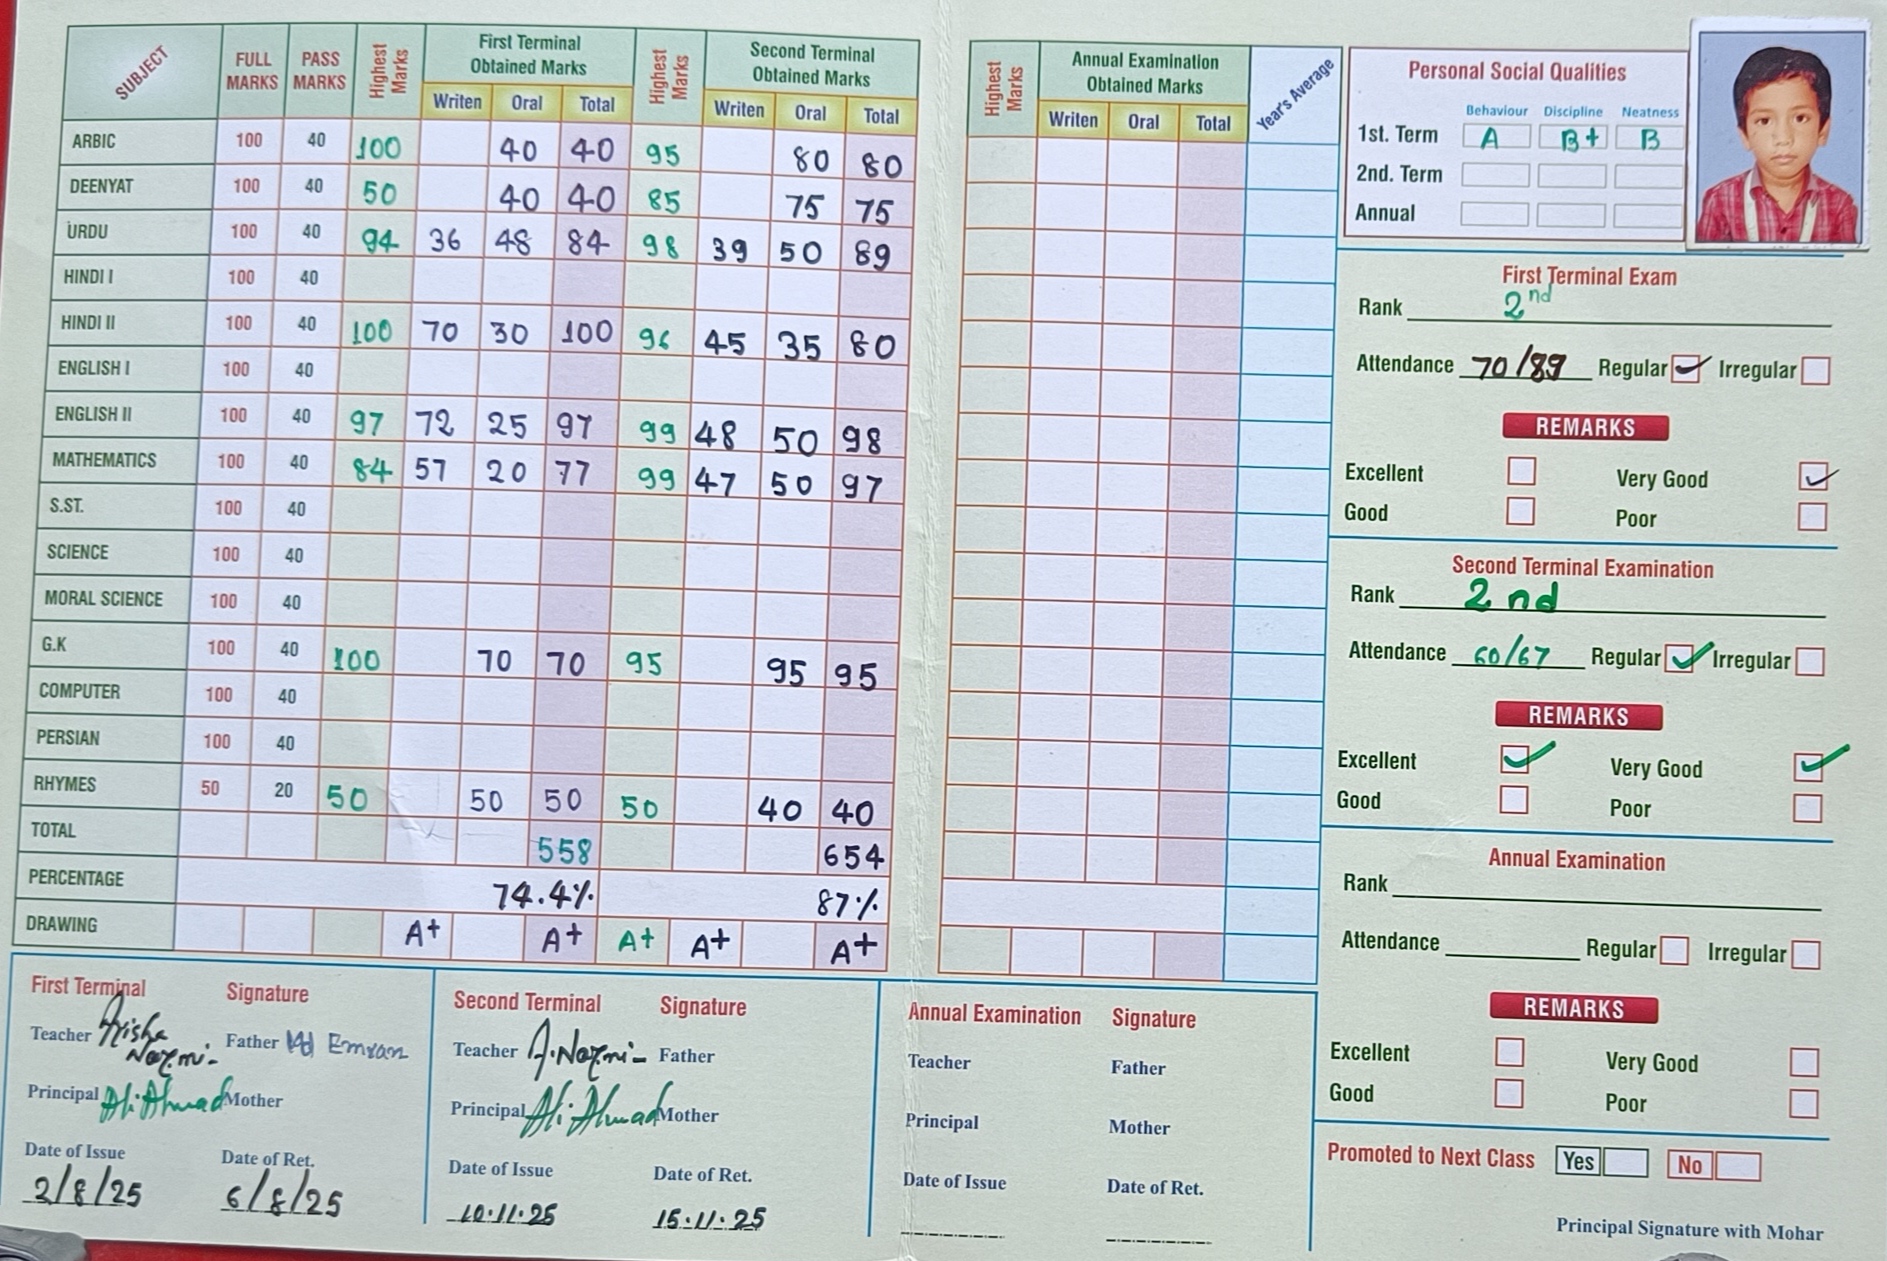 SUBJECT FULL MARKS PASS MARKS Highest Marks First Terminal Obtained Marks Highest Marks Second Terminal Obtained Marks
Writen Oral Total Writen Oral Total
ARBIC 100 40 100 40 40 95 80 80
DEENYAT 100 40 50 40 40 85 75 75
URDU 100 40 94 36 48 84 98 39 50 89
HINDI I 100 40
HINDI II 100 40 100 70 30 100 96 45 35 80
ENGLISH I 100 40
ENGLISH II 100 40 97 72 25 97 99 48 50 98
MATHEMATICS 100 40 84 57 20 77 99 47 50 97
S.ST. 100 40
SCIENCE 100 40
MORAL SCIENCE 100 40
G.K 100 40 100 70 70 95 95 95
COMPUTER 100 40
PERSIAN 100 40
RHYMES 50 20 50 50 50 50 40 40
TOTAL 558 654
PERCENTAGE 74.4% 87%
DRAWING A+ A+ A+ A+ A+
First Terminal Signature
Teacher Arisha Nazmi Father Md Emran
Principal Ali Ahmad Mother
Date of Issue Date of Ret.
2/8/25 6/8/25
Second Terminal Signature
Teacher A.Nazmi Father
Principal Ali Ahmad Mother
Date of Issue Date of Ret.
10.11.25 15.11.25
Highest Marks Annual Examination Obtained Marks Year's Average
Writen Oral Total
Annual Examination Signature
Teacher Father
Principal Mother
Date of Issue Date of Ret.
Personal Social Qualities
Behaviour Discipline Neatness
1st. Term A B+ B
2nd. Term
Annual
First Terminal Exam
Rank 2nd
Attendance 70/89 Regular Irregular
REMARKS
Excellent Very Good
Good Poor
Second Terminal Examination
Rank 2nd
Attendance 60/67 Regular Irregular
REMARKS
Excellent Very Good
Good Poor
Annual Examination
Rank
Attendance Regular Irregular
REMARKS
Excellent Very Good
Good Poor
Promoted to Next Class Yes No
Principal Signature with Mohar